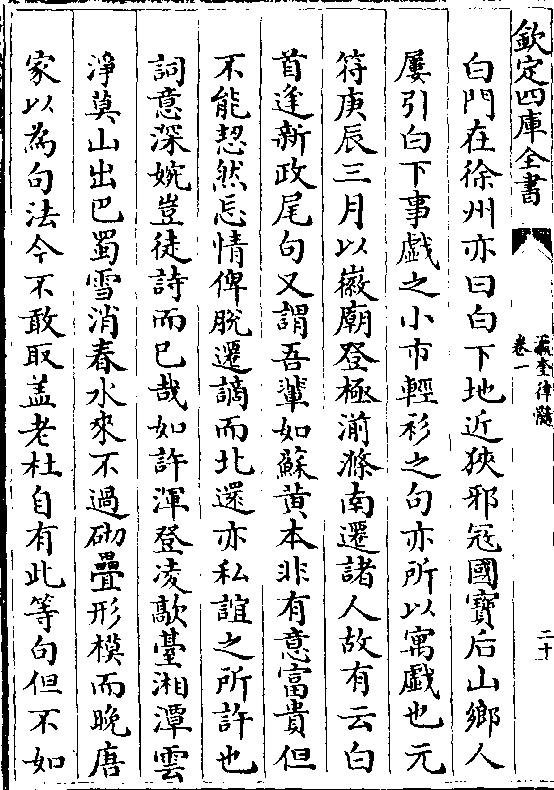 欽定四庫全書
瀛奎律髓
卷一
二十
白門在徐州亦曰白下地近狹邪冦國寳后山鄉人
屢引白下事戱之小市輕衫之句亦所以寓戱也元
符庚辰三月以徽廟登極湔滌南遷諸人故有云白
首逢新政尾句又謂吾輩如蘇黄本非有意富貴但
不能恝然忘情俾脱遷謫而北還亦私誼之所許也
詞意深婉豈徒詩而已哉如許渾登凌歊臺湘潭雲
淨莫山出巴蜀雪消春水來不過砌疊形模而晚唐
家以為句法今不敢取盖老杜自有此等句但不如